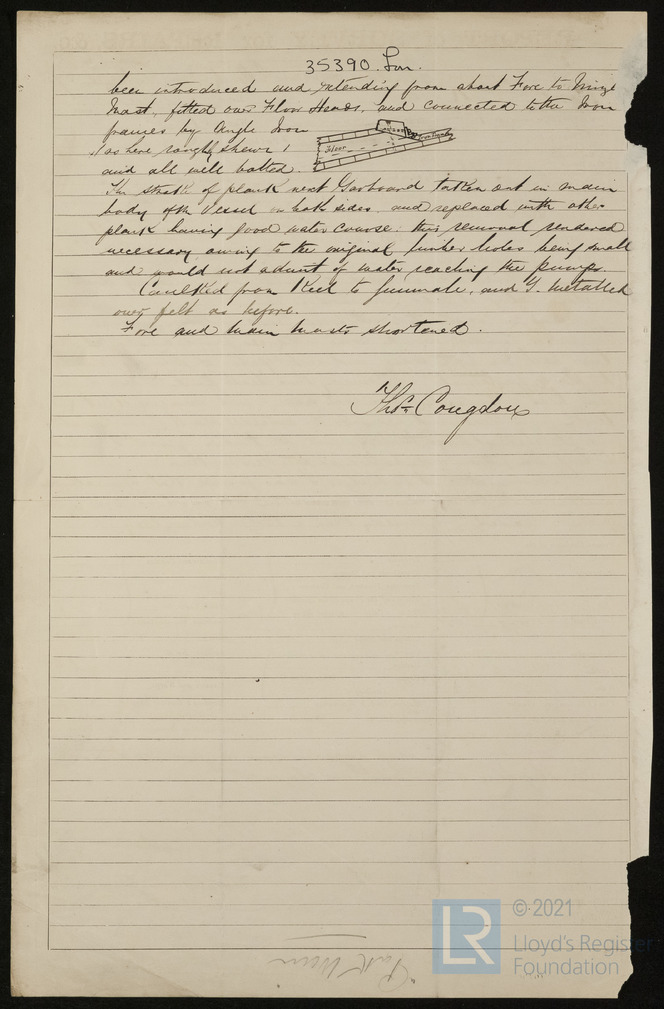 35390. Lon.
been introduced and extending from abaft Fore to Mizen
Mast, fitted over Floor Heads, and connected to the Iron
frames by Angle Iron
(as here roughly shewn)
Floor
and all well bolted.
The strake of plank next Garboard taken out in main
body of the Vessel on both sides and replaced with other
plank having good water course. this removal rendered
necessary owing to the original limber holes being small
and would not admit of water reaching the pumps.
Caulked from Keel to Gunwale, and Y. Metalled
over felt as before.
Fore and Main Masts shortened.
Thos Congdon
LR
© 2021
Lloyd's Register
Foundation